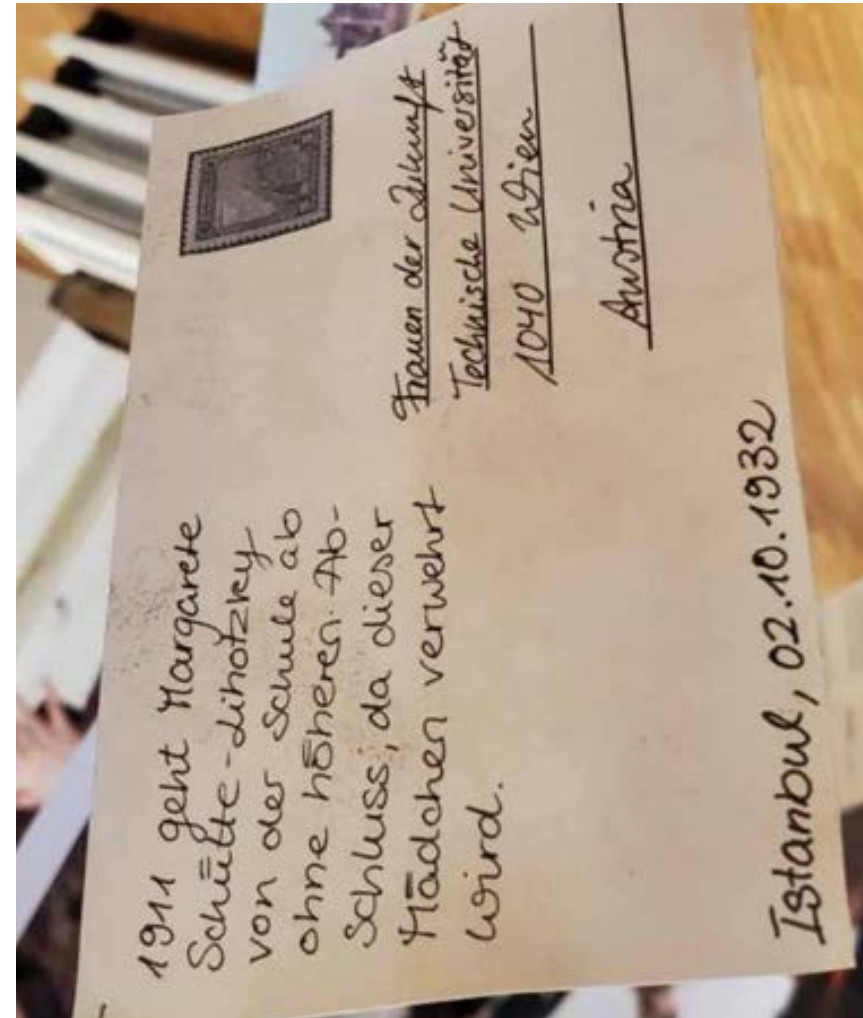 1911 geht Margarete
Schütte-Lihotzky
von der Schule ab
ohne höheren Ab-
schluss, da dieser
Mädchen verwehrt
wird.
Frauen der Zukunft
Technische Universität
1040 Wien
Austria
Istanbul, 02.10.1932